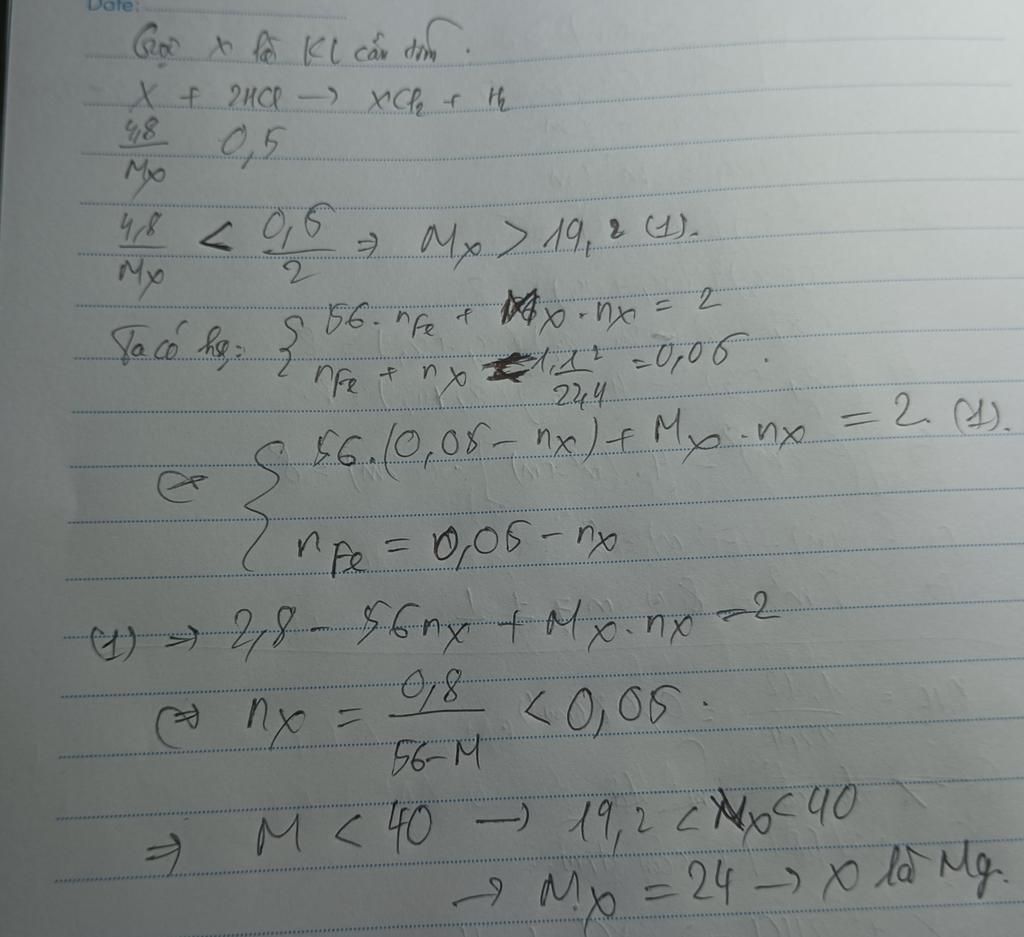 Date:
Gọi X là KL cần tìm.
X + 2HCl → XCl₂ + H₂
4,8/Mx 0,5
4,8/Mx < 0,5/2 ⇒ Mx > 19,2 (1).
Ta có hệ: { 56.nFe + Mx.nx = 2
nFe + nx = 1,12/22,4 = 0,05.
⇔ { 56.(0,05 - nx) + Mx.nx = 2. (1).
nFe = 0,05 - nx
(1) ⇒ 2,8 - 56nx + Mx.nx = 2
⇔ nx = 0,8/56-M < 0,05.
⇒ M < 40 → 19,2 < Mx < 40
→ Mx = 24 → X là Mg.